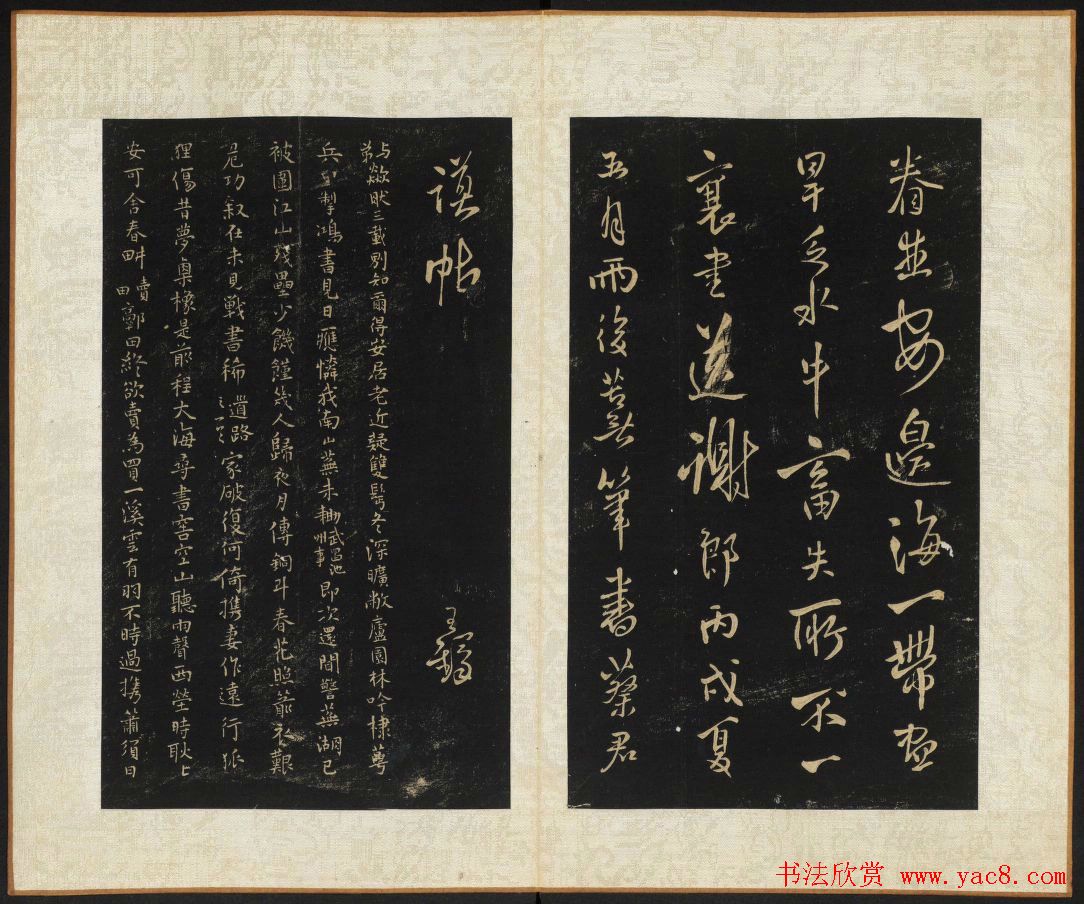 眷並安邊海一帶盡
旱乏水牛畜失所不一
襄書送謝郎丙戌夏
五月雨後筆書蔡君
謨帖 王鐸
三載別知爾得安居老近疑雙髩冬深曠敝廬園林吟棣萼
兵掣鴻書見日應憐我南山蕪未鋤武昌池州事即次還聞警蕪湖已
被圍江山殘壘少饑饉幾人歸夜月傳銅斗春花照箭衣艱
危功敘在未見戰書稀 道路家破復何倚攜妻作遠行
狸傷昔夢橡是前程大海尋書空山聽雨聲西塋時耿
安可舍春畊賣田 田終欲賣為買一溪雲有羽不時過攜蕭須日
书法欣赏 www.yac8.com